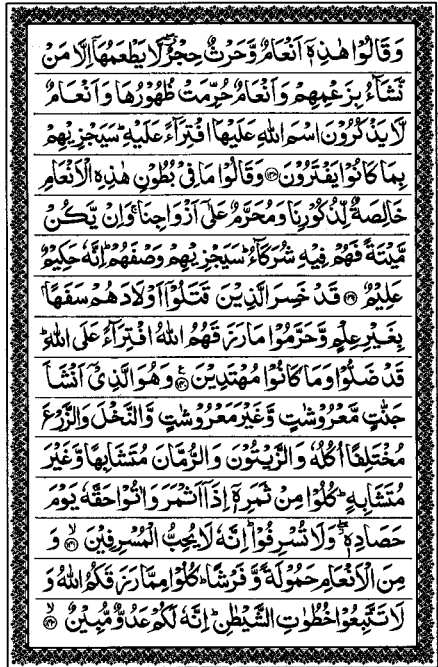 وَقَالُوْا هٰذِهٖۤ اَنْعَامٌ وَّحَرْثٌ حِجْرٌ ۖ لَّا يَطْعَمُهَاۤ اِلَّا مَنْ
نَّشَآءُ بِزَعْمِهِمْ وَاَنْعَامٌ حُرِّمَتْ ظُهُوْرُهَا وَاَنْعَامٌ
لَّا يَذْكُرُوْنَ اسْمَ اللّٰهِ عَلَيْهَا افْتِرَآءً عَلَيْهِ ؕ سَيَجْزِيْهِمْ
بِمَا كَانُوْا يَفْتَرُوْنَ ﴿۱۳۸﴾ وَقَالُوْا مَا فِیْ بُطُوْنِ هٰذِهِ الْاَنْعَامِ
خَالِصَةٌ لِّذُكُوْرِنَا وَمُحَرَّمٌ عَلٰۤی اَزْوَاجِنَا ۚ وَاِنْ يَّكُنْ
مَّيْتَةً فَهُمْ فِيْهِ شُرَكَآءُ ؕ سَيَجْزِيْهِمْ وَصْفَهُمْ ؕ اِنَّهٗ حَكِيْمٌ
عَلِيْمٌ ﴿۱۳۹﴾ قَدْ خَسِرَ الَّذِيْنَ قَتَلُوْۤا اَوْلَادَهُمْ سَفَهًۢا
بِغَيْرِ عِلْمٍ وَّحَرَّمُوْا مَا رَزَقَهُمُ اللّٰهُ افْتِرَآءً عَلَی اللّٰهِ ؕ
قَدْ ضَلُّوْا وَمَا كَانُوْا مُهْتَدِيْنَ ﴿۱۴۰﴾ وَهُوَ الَّذِیْۤ اَنْشَاَ
جَنّٰتٍ مَّعْرُوْشٰتٍ وَّغَيْرَ مَعْرُوْشٰتٍ وَّالنَّخْلَ وَالزَّرْعَ
مُخْتَلِفًا اُكُلُهٗ وَالزَّيْتُوْنَ وَالرُّمَّانَ مُتَشَابِهًا وَّغَيْرَ
مُتَشَابِهٍ ؕ كُلُوْا مِنْ ثَمَرِهٖۤ اِذَاۤ اَثْمَرَ وَاٰتُوْا حَقَّهٗ يَوْمَ
حَصَادِهٖ ۖ وَلَا تُسْرِفُوْا ؕ اِنَّهٗ لَا يُحِبُّ الْمُسْرِفِيْنَ ﴿۱۴۱﴾ وَ
مِنَ الْاَنْعَامِ حَمُوْلَةً وَّفَرْشًا ؕ كُلُوْا مِمَّا رَزَقَكُمُ اللّٰهُ وَ
لَا تَتَّبِعُوْا خُطُوٰتِ الشَّيْطٰنِ ؕ اِنَّهٗ لَكُمْ عَدُوٌّ مُّبِيْنٌ ﴿۱۴۲﴾